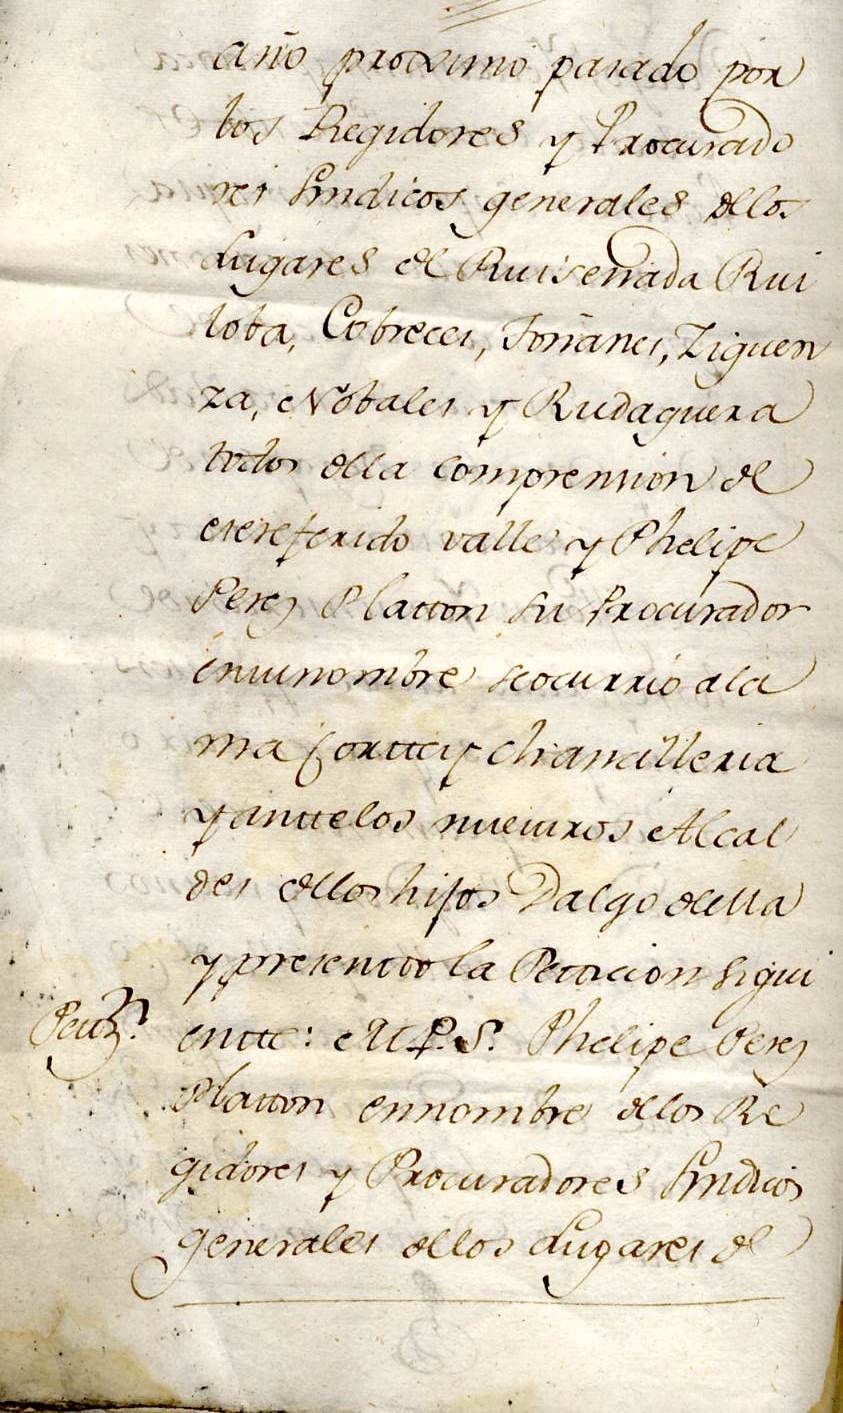 año proximo pasado por
los Regidores y Procurado
res Sindicos generales de los
Lugares de Ruiseñada Rui
loba, Cobreces, Toñanes, Ziguen
za, Nobales y Rudaguera
todos de la comprension de
ese referido valle y Phelipe
Perez Platton su Procurador
en su nombre se ocurrio a la
mia Cortte y Chancilleria
y antte los nuestros Alcal
des de los hijos Dalgo de ella
y presentto la Petticion sigui
entte: M.P.S. Phelipe Perez
Pettz.ⁿ
Platton en nombre de los Re
gidores y Procuradores Sindicos
generales de los Lugares de